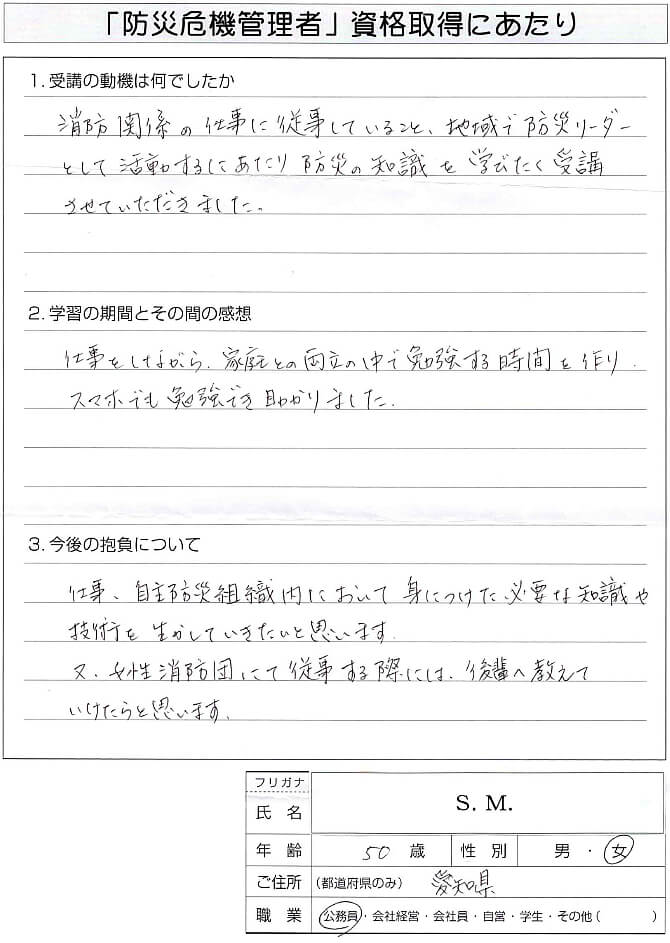 「防災危機管理者」資格取得にあたり
1.受講の動機は何でしたか
消防関係の仕事に従事していること、地域で防災リーダー
として活動するにあたり防災の知識を学びたく受講
させていただきました。
2.学習の期間とその間の感想
仕事をしながら、家庭との両立の中で勉強する時間を作り、
スマホでも勉強でき助かりました。
3.今後の抱負について
仕事、自主防災組織内において身につけた必要な知識や
技術を生かしていきたいと思います。
又、女性消防団にて従事する際には、後輩へ教えて
いけたらと思います。
フリガナ
氏 名 S. M.
年 齢 50 歳 性 別 男 ・ 女
ご住所 (都道府県のみ) 愛知県
職 業 公務員・会社経営・会社員・自営・学生・その他( )